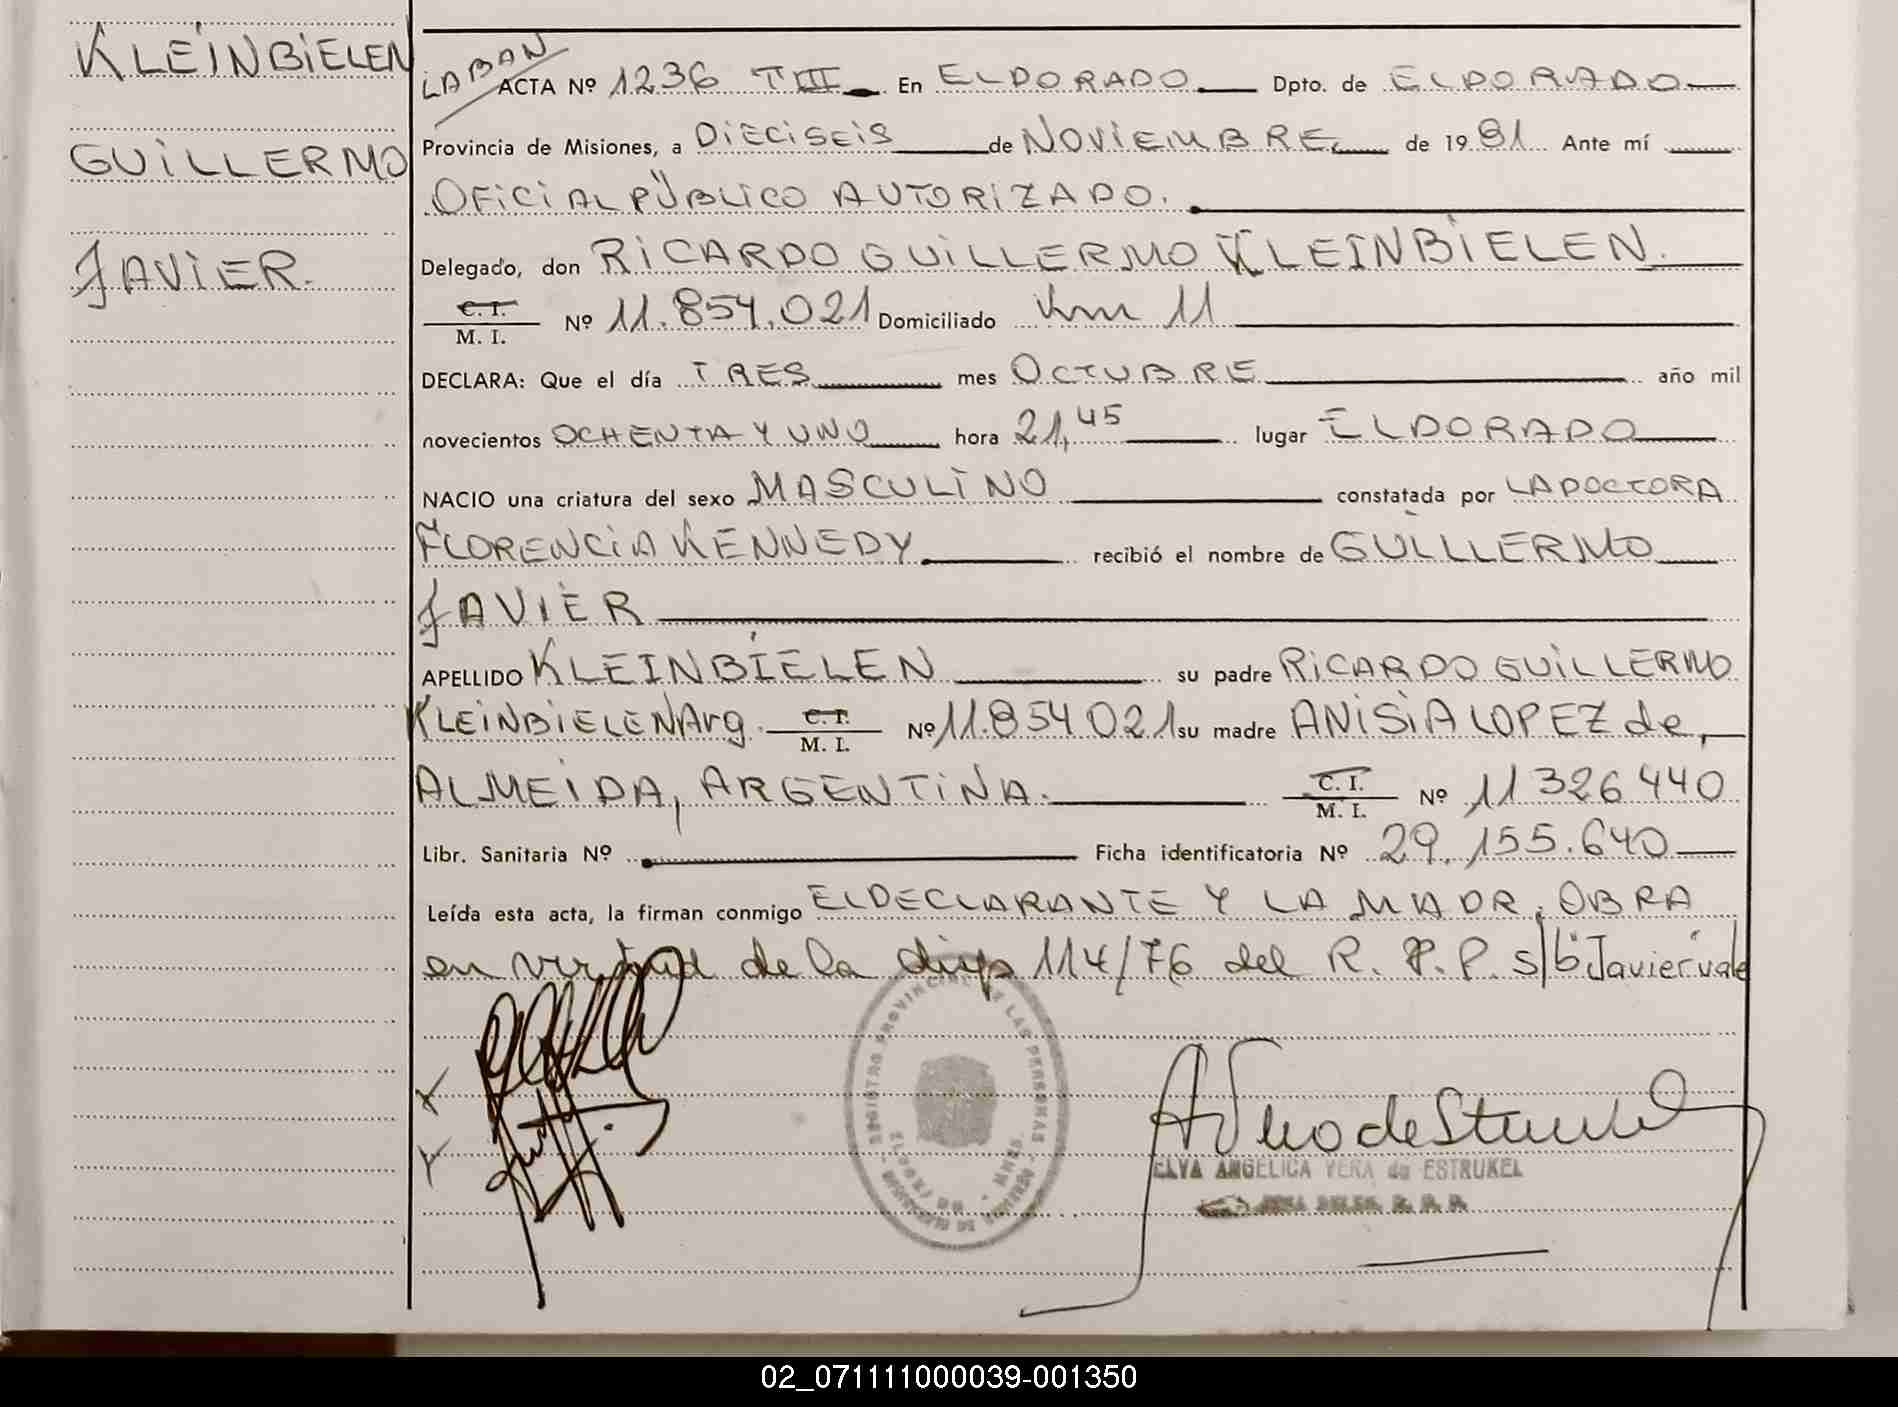 KLEINBIELEN
GUILLERMO
JAVIER.
LABAN
ACTA Nº 1236 TIII En ELDORADO Dpto. de ELDORADO
Provincia de Misiones, a DIECISEIS de NOVIEMBRE de 1981 Ante mí
OFICIAL PÚBLICO AUTORIZADO.
Delegado, don RICARDO GUILLERMO KLEINBIELEN.
C. I.
M. I. Nº 11.854.021 Domiciliado Km 11
DECLARA: Que el día TRES mes OCTUBRE año mil
novecientos OCHENTA Y UNO hora 21,45 lugar ELDORADO
NACIO una criatura del sexo MASCULINO constatada por LA DOCTORA
FLORENCIA KENNEDY recibió el nombre de GUILLERMO
JAVIER
APELLIDO KLEINBIELEN su padre RICARDO GUILLERMO
KLEINBIELEN Arg. C. I. M. I. Nº 11.854021 su madre ANISIA LOPEZ de
ALMEIDA, ARGENTINA. C. I. M. I. Nº 11326440
Libr. Sanitaria Nº Ficha identificatoria Nº 29.155.640
Leída esta acta, la firman conmigo EL DECLARANTE Y LA MADR. OBRA
en virtud de la disp 114/76 del R. P. P. s/b: Javier: vale
REGISTRO PROVINCIAL DE LAS PERSONAS
ELDORADO - MNES.
MINISTERIO DE GOBIERNO
ELVA ANGELICA VERA de ESTRUKEL
02_071111000039-001350